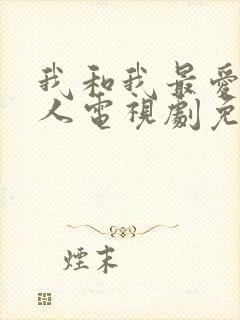 我和我最愛
人電視劇免
煙末